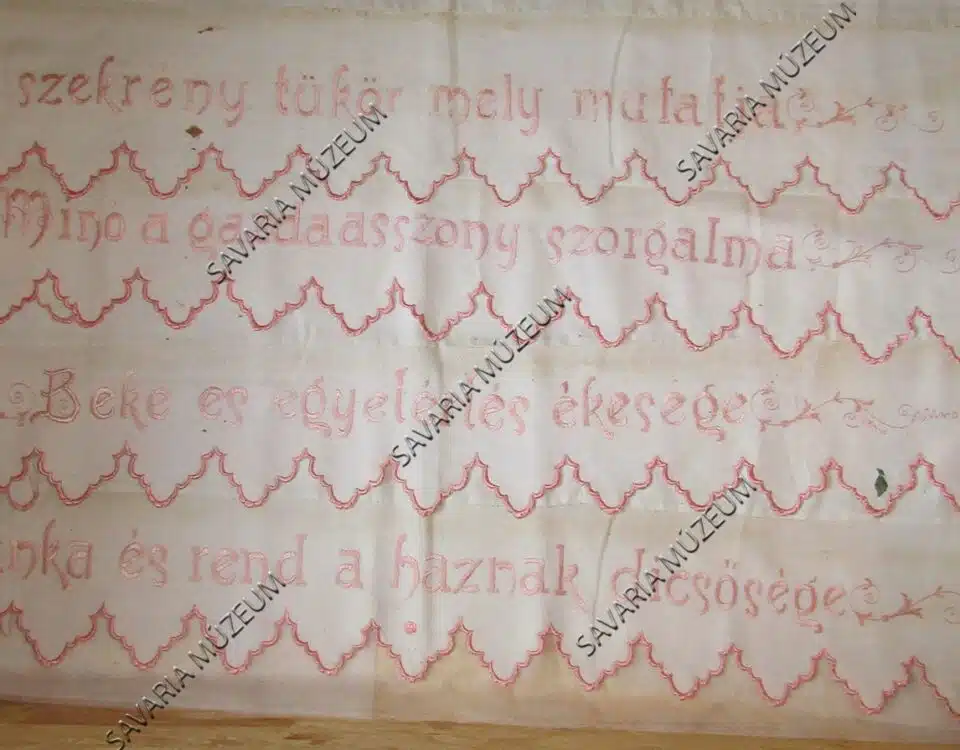 szekreny tükör mely mutatja
Mino a gazdaasszony szorgalma
Beke es egyetértés ékesége
unka és rend a haznak dicsősége
SAVARIA MÚZEUM
SAVARIA MÚZEUM
SAVARIA MÚZEUM
SAVARIA MÚZEUM
SAVARIA MÚZEUM
SAVARIA MÚZEUM